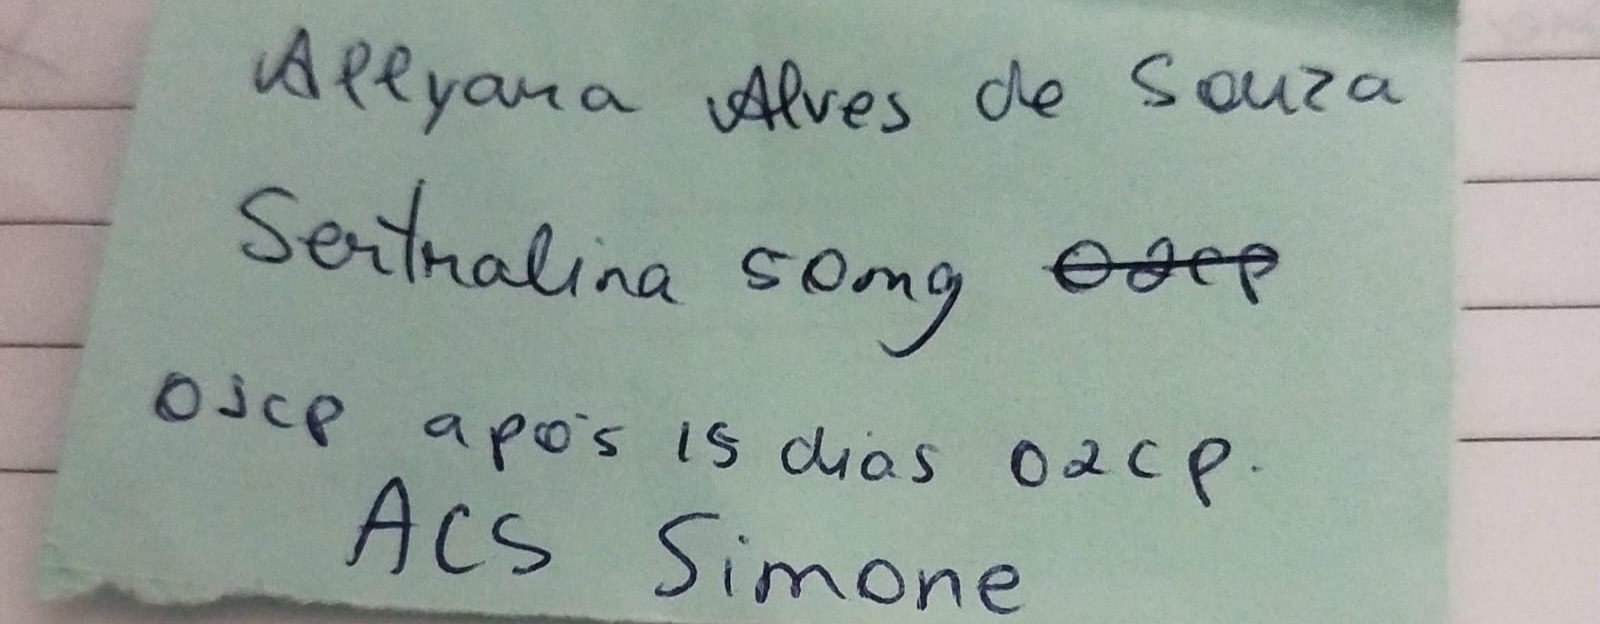 Allyana Alves de Souza
Sertralina 50mg 02cp
01cp após 15 dias 02cp.
ACS Simone